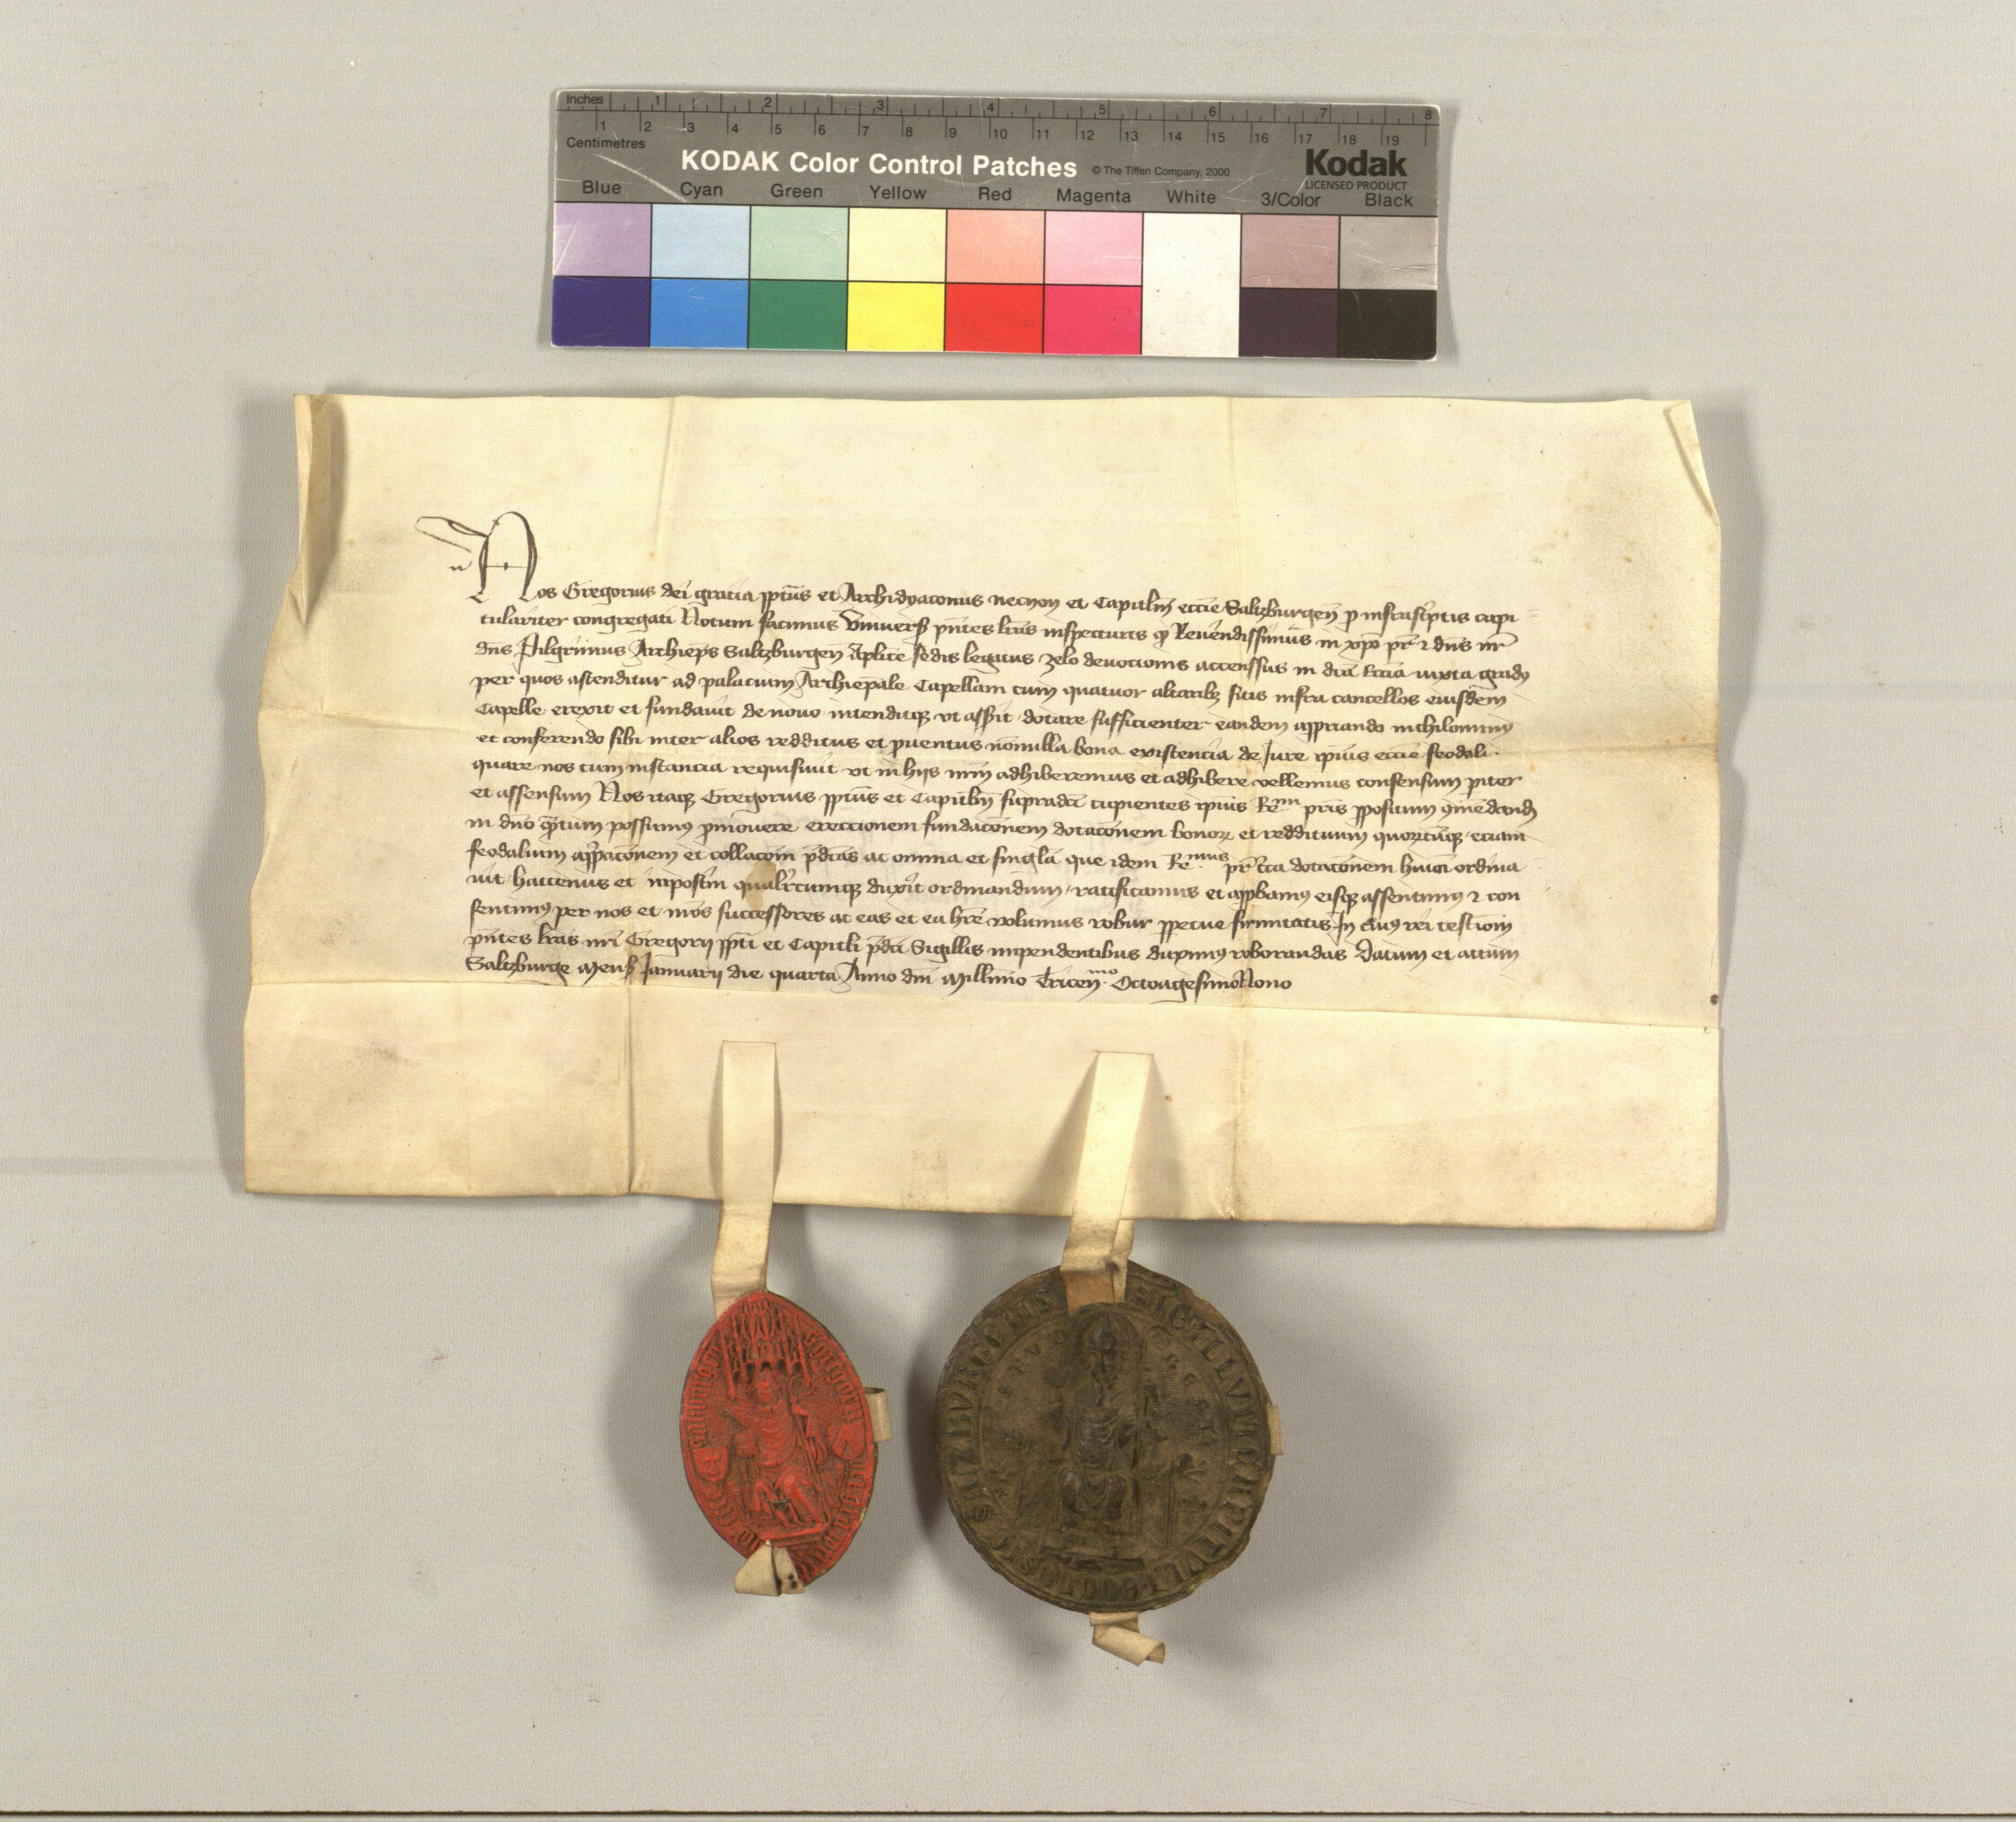 Inches 1 2 3 4 5 6 7 8
1 2 3 4 5 6 7 8 9 10 11 12 13 14 15 16 17 18 19
Centimetres
KODAK Color Control Patches © The Tiffen Company, 2000 Kodak
LICENSED PRODUCT
Blue Cyan Green Yellow Red Magenta White 3/Color Black
n
Nos Gregorius dei gracia ppt̄us et Archidyaconus necnon et Capitlm̄ eccīe Saltzburgen̄ p infrasc̄ptis capi
tulariter congregati Notum facimus Vniuers̄ pn̄tes lr̄as inspecturis ꝙ Reuerendissimus in xp̄o pr̄ ⁊ dn̄s nr̄
dn̄s Pilgrimus Archiep̄s Saltzburgen̄ Aplīce sedis legatus zelo deuocionis accenssus in dc̄a Eccīa iuxta gradꝰ
per quos ascenditur ad palacium Archiep̄ale Capellam cum quatuor altaribꝫ sitis infra cancellos eiusdem
Capelle erexit et fundauit de nouo intenditqꝫ vt assīt dotare sufficienter eandem app̄riando nichilominꝰ
et conferendo sibi inter alios redditus et ꝓuentus nōnulla bona existencia de Jure ip̄ius eccīe feodali
quare nos cum instancia requisiuit vt in hijs nr̄m adhiberemus et adhibere vellemus consensum p̄iter
et assensum Nos itaqꝫ Gregorius ppt̄us et Capitlm̄ supradc̄i cupientes ip̄ius Reᵐⁱ pr̄is ꝓpositum ꝯmēdandꝰ
in dn̄o qn̄tum possumꝰ ꝓmouere ereccionem fundacōnem dotacōnem bonoꝝ et reddituum quoꝝcūqꝫ eciam
feodalium app̄acōnem et collacōm p̄dc̄as ac omnia et singl̄a que idem Reᵐᵘˢ pr̄ cc̄a dotacōnem hmōi ordina
uit hactenus et inpostm̄ qualr̄cumqꝫ duxīt ordinandum ratificamus et app̄bamꝰ eisqꝫ assentimꝰ ⁊ con
sentimꝰ per nos et nr̄os successores ac eas et ea hr̄e volumus robur ꝑpetue firmitatis In cuiꝰ rei testīom̄
pn̄tes lr̄as nr̄i Gregorij ppt̄i et Capitli p̄dc̄i Sigillis inpendentibus duximꝰ roborandas Datum et actum
Saltzburge Mens̄ Januarij die quarta Anno dn̄i Millīmo Tricen̄ᵐᵒ Octuagesimo Nono
SIGILLVM CAPITVLI